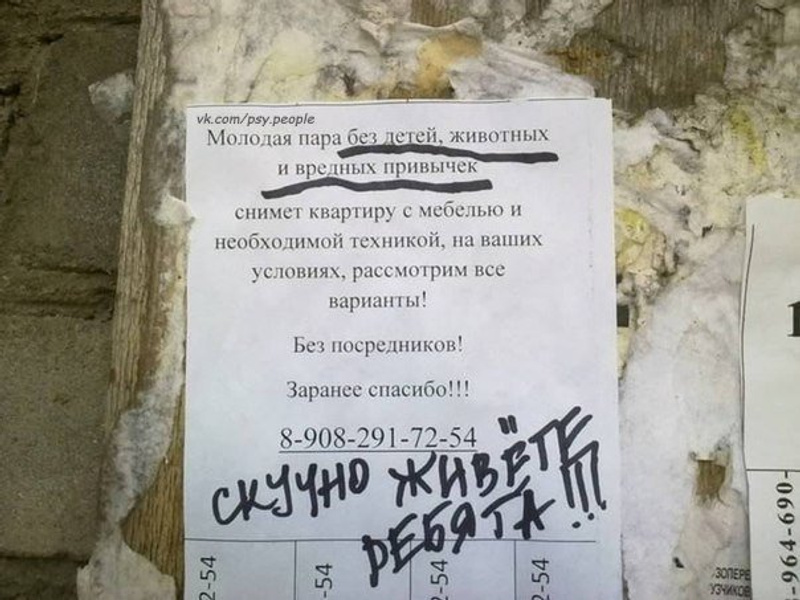 vk.com/psy.people
Молодая пара без детей, животных
и вредных привычек
снимет квартиру с мебелью и
необходимой техникой, на ваших
условиях, рассмотрим все
варианты!
Без посредников!
Заранее спасибо!!!
8-908-291-72-54
СКУЧНО ЖИВЁТЕ
РЕБЯТА!!!
2-54
-54
2-54
2-54
-964-690-